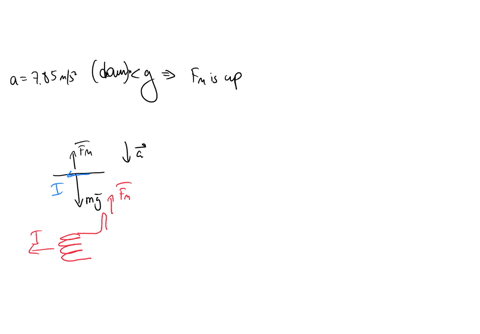 a = 7.85 m/s² (down) < g ⇒ Fₘ is up
F̅ₘ
a⃗
I
mg̅
F̅ₘ
I